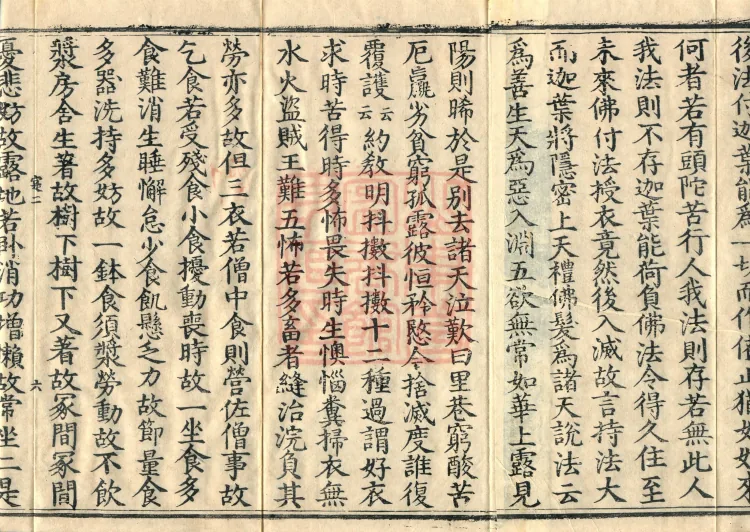 後法付迦葉能為一切而作依止猶如如來
何者若有頭陀苦行人我法則存若無此人
我法則不存迦葉能荷負佛法令得久住至
未來佛付法授衣竟然後入滅故言持法大
而迦葉將隱密上天禮佛髮為諸天說法云
為善生天為惡入淵五欲無常如華上露見
陽則晞於是別去諸天泣歎曰里巷窮酸苦
厄羸劣貧窮孤露彼恒矜愍今捨滅度誰復
覆護云云約教明抖擻抖擻十二種過謂好衣
求時苦得時多怖畏失時生懊惱糞掃衣無
水火盜賊王難五怖若多畜者縫治浣負其
勞亦多故但三衣若僧中食則營佐僧事故
乞食若受殘食小食擾動喪時故一坐食多
食難消生睡懈怠少食飢懸乏力故節量食
多器洗持多妨故一鉢食須漿勞動故不飲
漿房舍生著故樹下樹下又著故冢間冢間
寔二 六
憂悲妨故露地若臥消功增懶故常坐二是